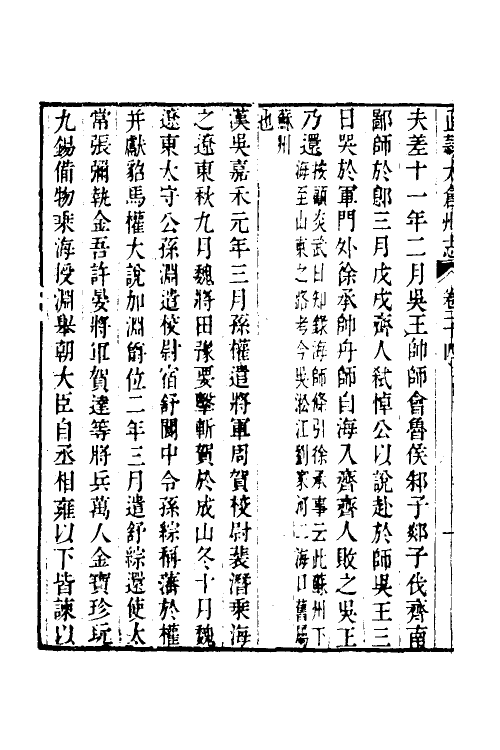 直隸太倉州志 卷二十四
夫差十一年二月吳王帥師會魯侯邾子郯子伐齊南
鄙師於郎三月戊戌齊人弒悼公以說赴於師吳王三
日哭於軍門外徐承帥舟師自海入齊齊人敗之吳王
乃還按顧炎武日知錄海師條引徐承事云此蘇州下
海至山東之路考今吳淞江劉家河二海口舊屬
蘇州
也
漢吳嘉禾元年三月孫權遣將軍周賀校尉裴潛乘海
之遼東秋九月魏將田豫要擊斬賀於成山冬十月魏
遼東太守公孫淵遣校尉宿舒閬中令孫綜稱藩於權
并獻貂馬權大說加淵爵位二年三月遣舒綜還使太
常張彌執金吾許晏將軍賀達等將兵萬人金寶珍玩
九錫備物乘海授淵舉朝大臣自丞相雍以下皆諫以